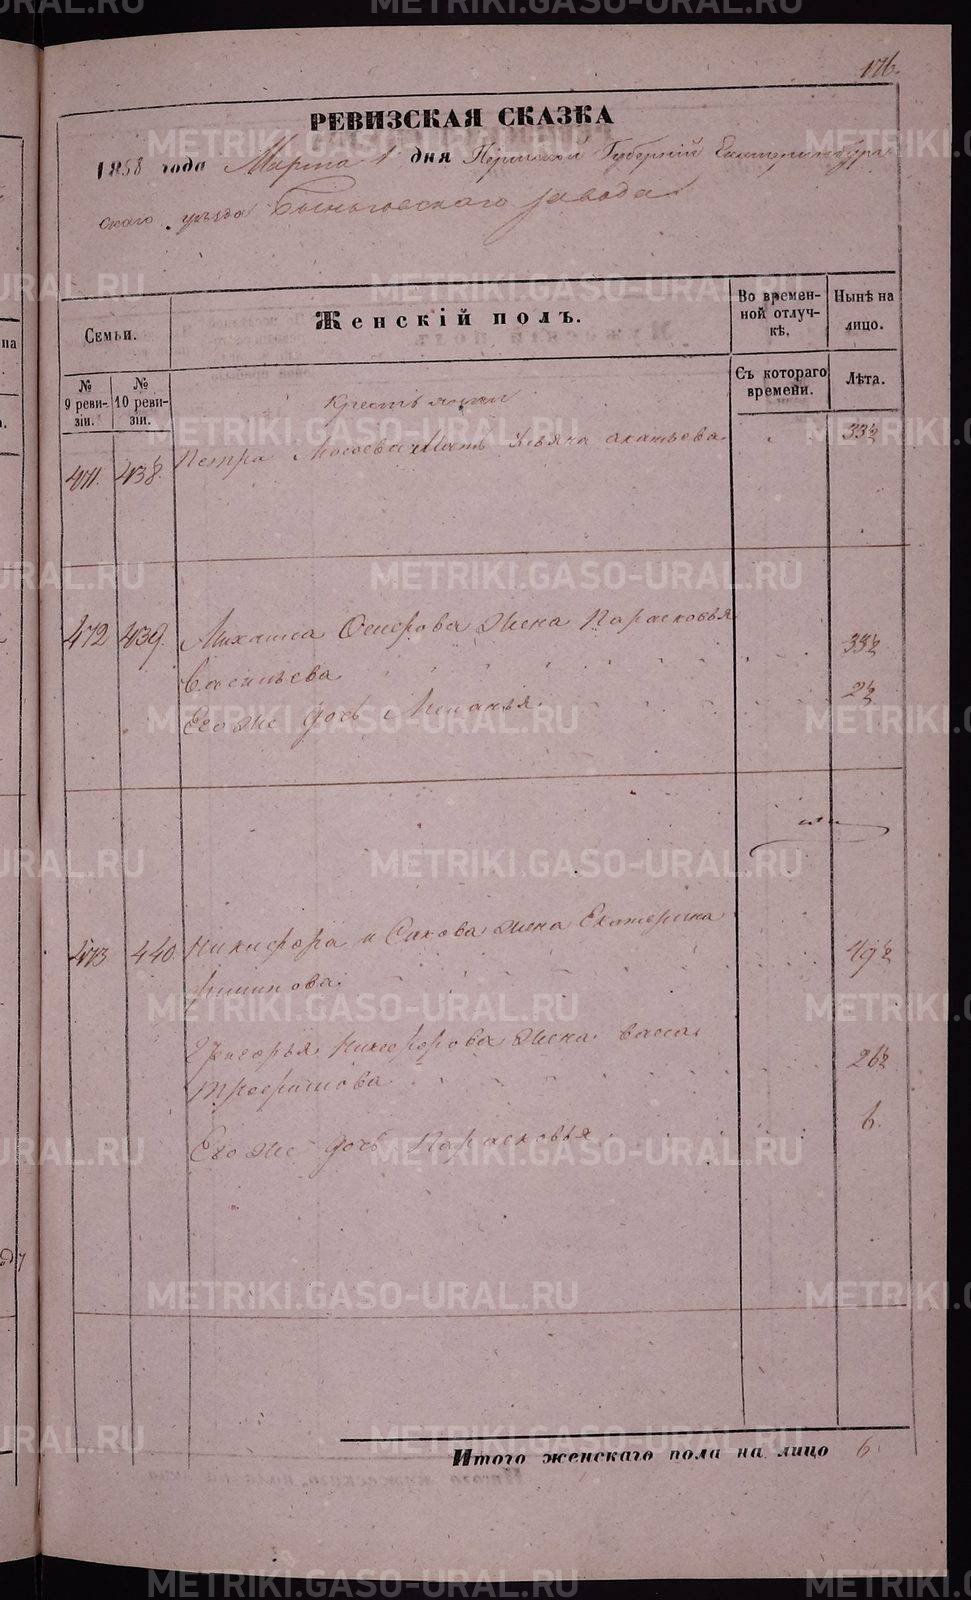 176.
РЕВИЗСКАЯ СКАЗКА
1858 года Марта 1 дня Пермской Губерніи Екатеринбург
скаго уѣзда Быньговскаго завода
Семьи.
Женскій полъ.
Во времен-
ной отлуч-
кѣ.
Нынѣ на
лицо.
№
9 реви-
зіи.
№
10 реви-
зіи.
Съ котораго
времени.
Лѣта.
Крестьяне
471. 438. Петра Мать 33½
472 439. Михаила Осипова жена Парасковья
Васильева 33½
Его же дочь Меланья 2½
473 440. Никифора жена Екатерина
49½
Григорья Никифорова жена Васса
Трофимова 26½
Его же дочь Парасковья 6.
Итого женскаго пола на лицо 6.
METRIKI.GASO-URAL.RU